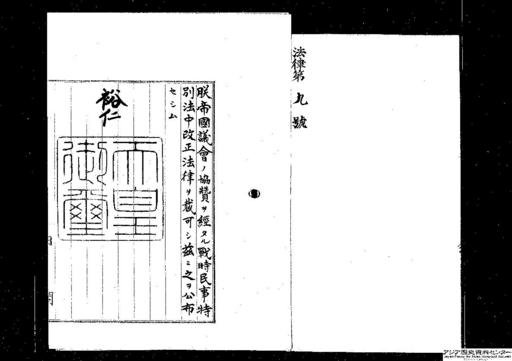 法律第九號
朕帝國議會ノ協贊ヲ經タル戰時民事特
別法中改正法律ヲ裁可シ茲ニ之ヲ公布
セシム
裕仁
天皇
御璽
アジア歴史資料センター